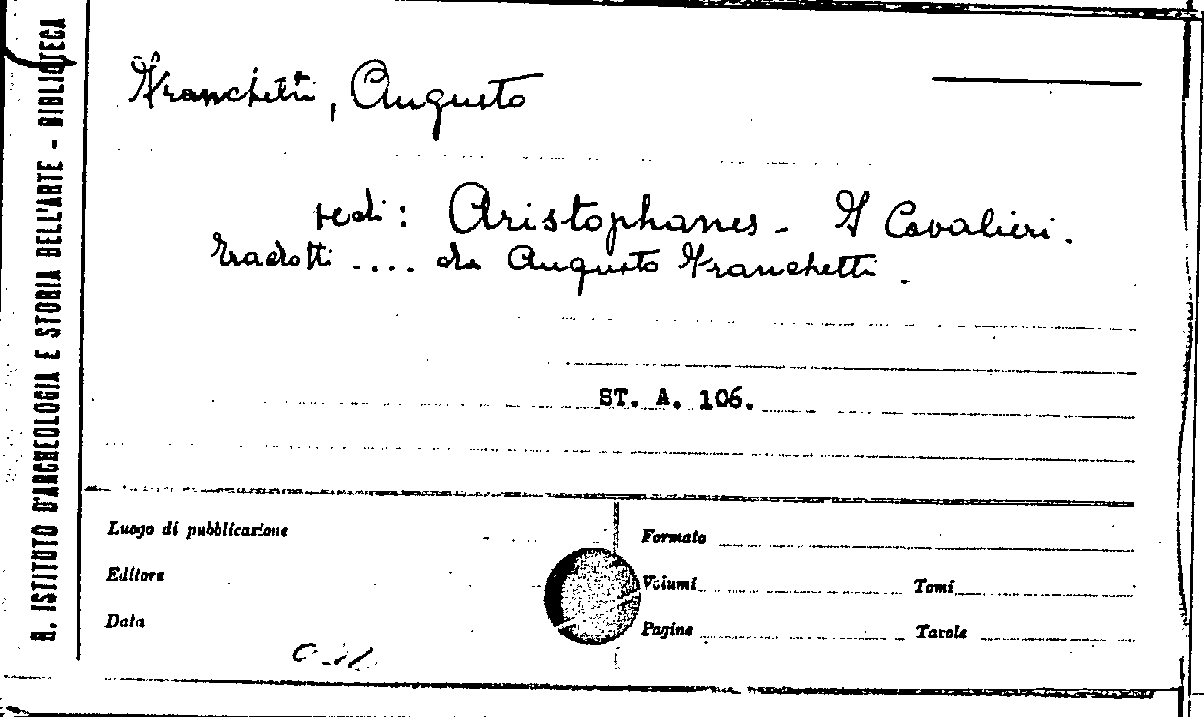 R. ISTITUTO D'ARCHEOLOGIA E STORIA DELL'ARTE - BIBLIOTECA
Franchetti, Augusto
vedi: Aristophanes - I Cavalieri.
tradotti .... da Augusto Franchetti.
ST. A. 106.
Luogo di pubblicazione
Editore
Data
Formato
Volumi Tomi
Pagine Tavole